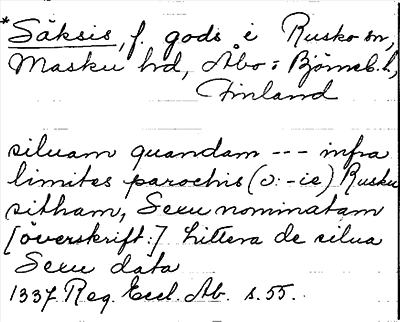 *Säksis, f. gods i Rusko sn,
Masku hd, Åbo: Björneb. l,
Finland
siluam quandam --- infra
limites parochis (ɔ: -ie) Rusku
sitham, Sexu nominatam
[överskrift:] Littera de silua
Sexu data
1337 Reg. Eccl. Ab. s. 55.